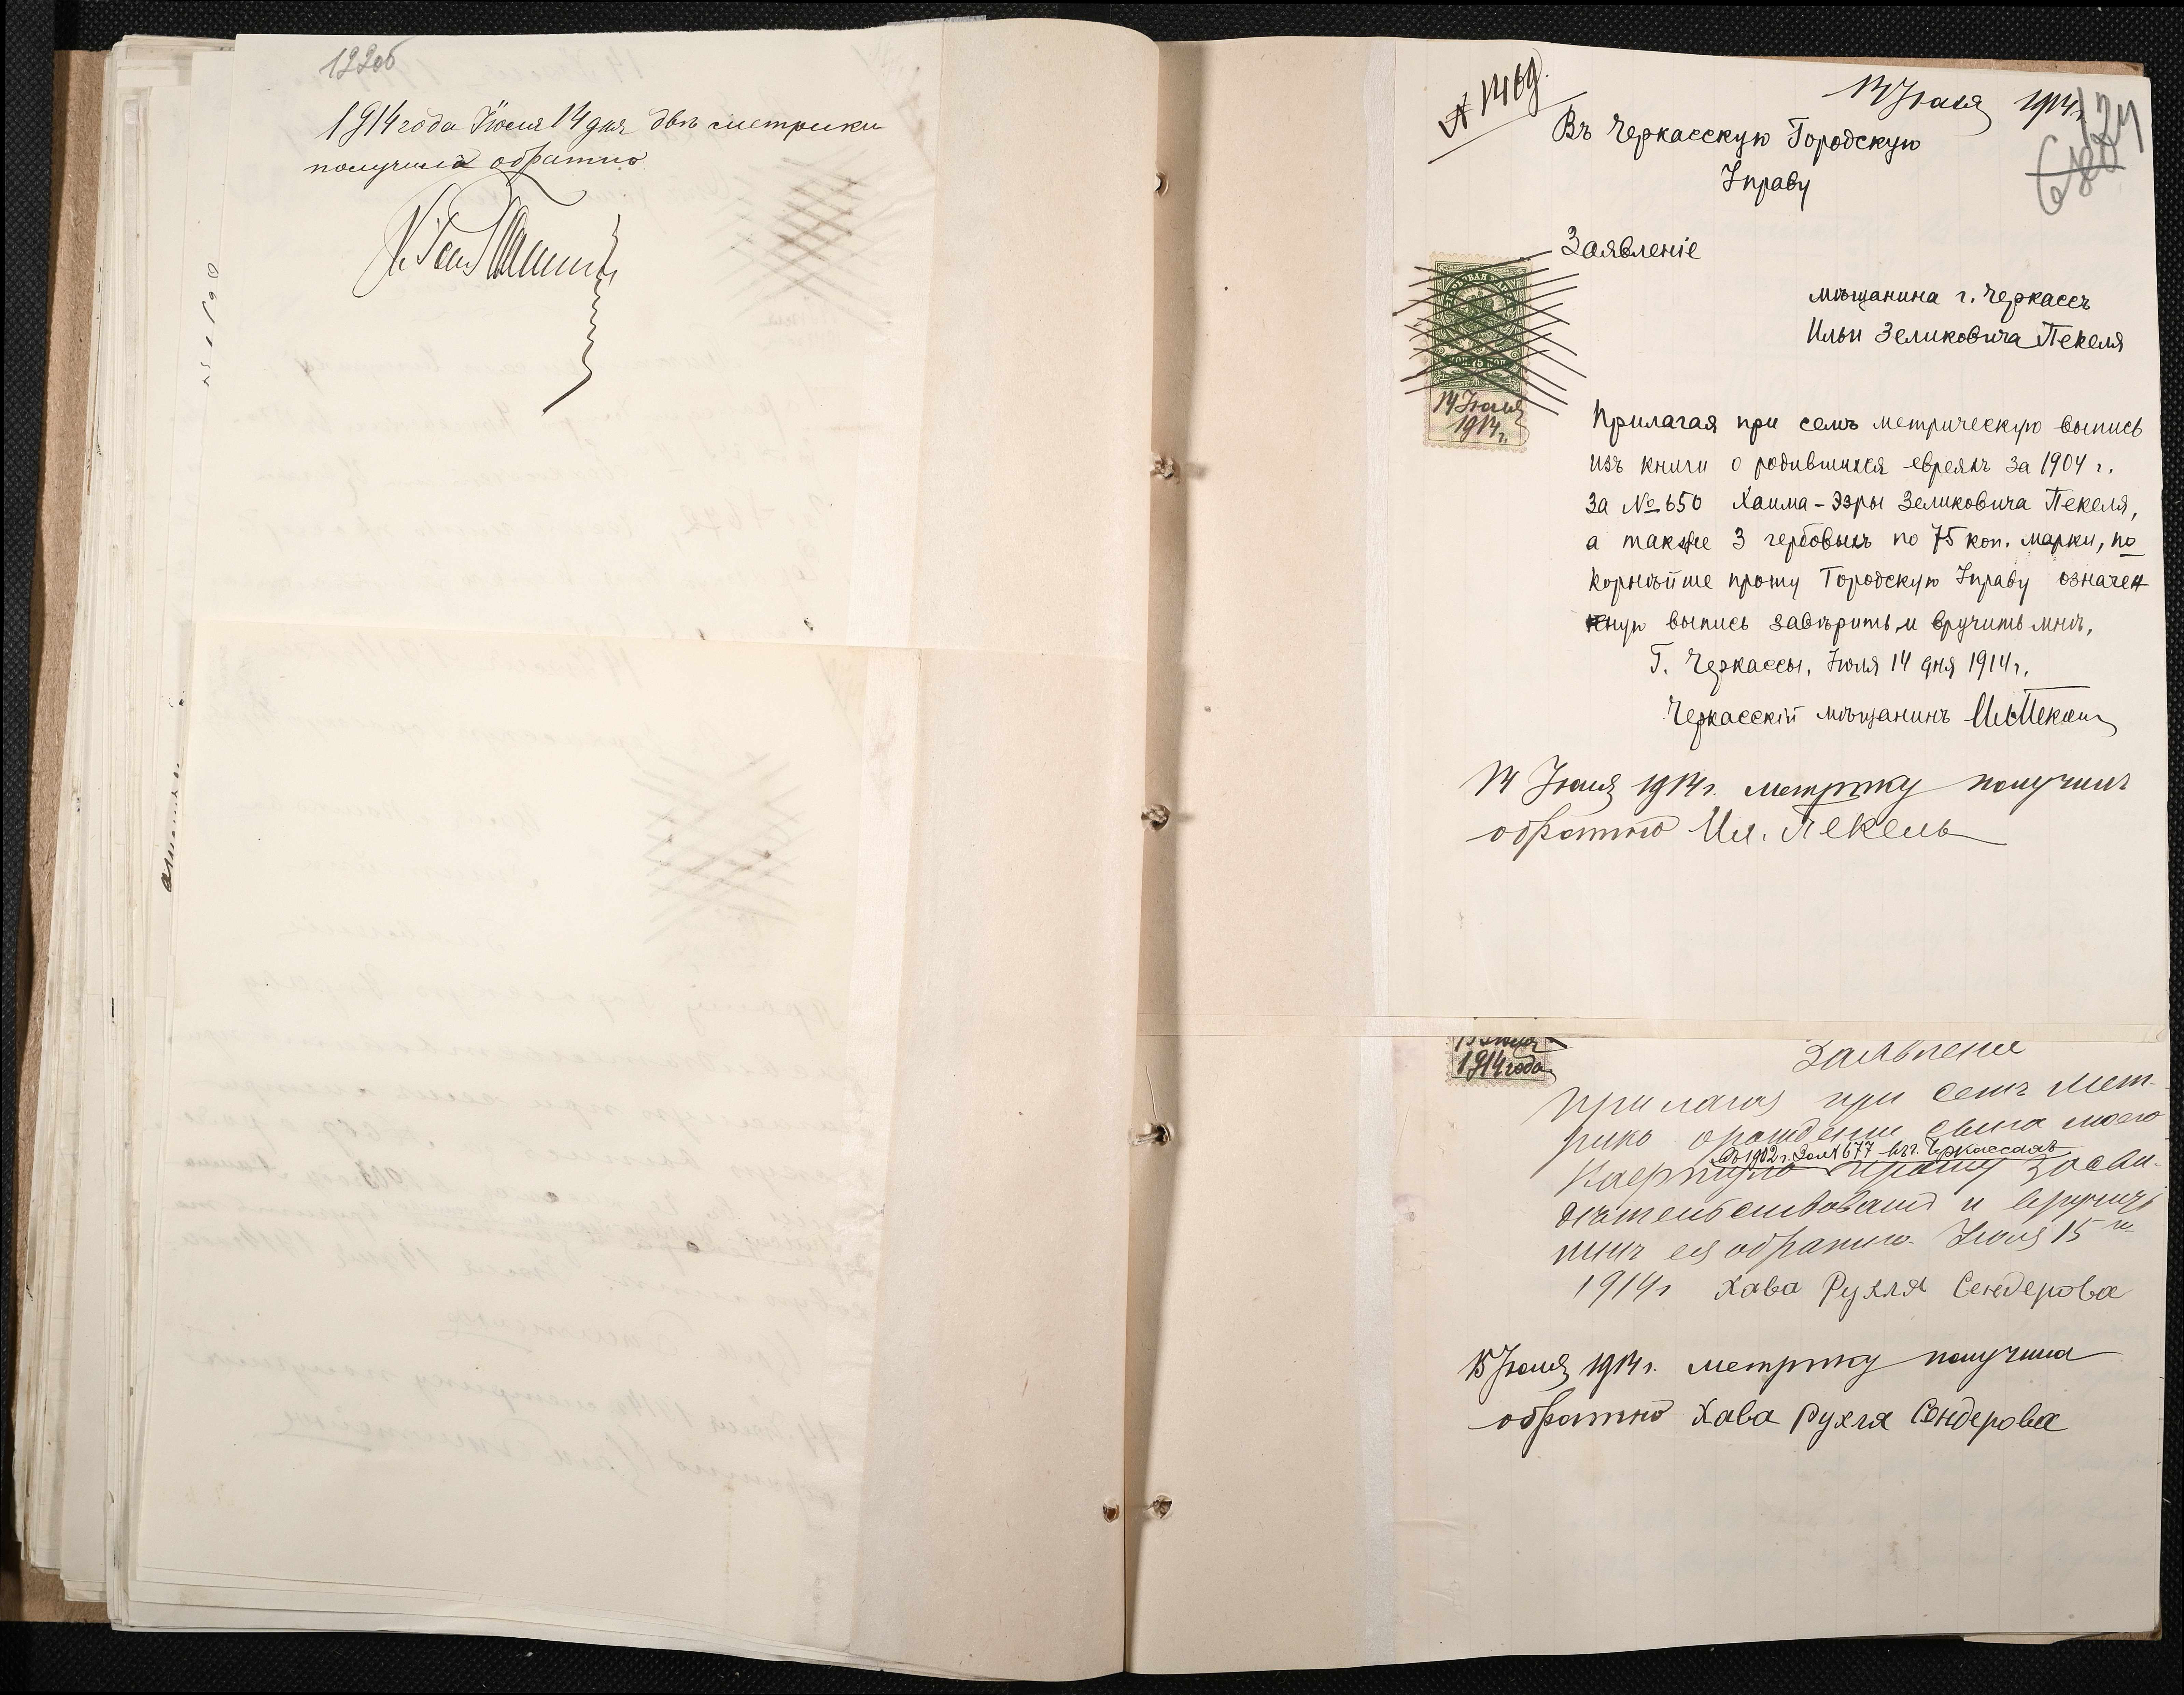 122об
1914 года Іюля 14 дня двѣ метрики
получила обратно
№ 1469.
14 Іюля 1914 г.
124
Въ Черкасскую Городскую
Управу
Заявленіе
мѣщанина г. Черкассъ
Ильи Зеликовича Пекеля
75 коп.
14 Іюля
1914 г.
Прилагая при семъ метрическую выпись
изъ книги о родившихся евреяхъ за 1904 г.
за № 650 Хаима-Эзры Зеликовича Пекеля,
а также 3 гербовыхъ по 75 коп. марки, по
корнѣйше прошу Городскую Управу означен
ную выпись завѣрить и вручить мнѣ.
Г. Черкассы, Іюля 14 дня 1914 г.
Черкасскій мѣщанинъ Ил Пекель
14 Іюля 1914 г. метрику получилъ
обратно Ил. Пекель
15 Іюля
1914 года
Заявление
Прилагая при семъ мет-
рику о рождении сына моего
въ 1902 г. за № 677 въ г. Черкассахъ
прошу засви-
дѣтельствовать и вручить
мнѣ ея обратно. Іюля 15 го
1914 г Хава Рухля Сендерова
15 Іюля 1914 г. метрику получила
обратно Хава Рухля Сендерова